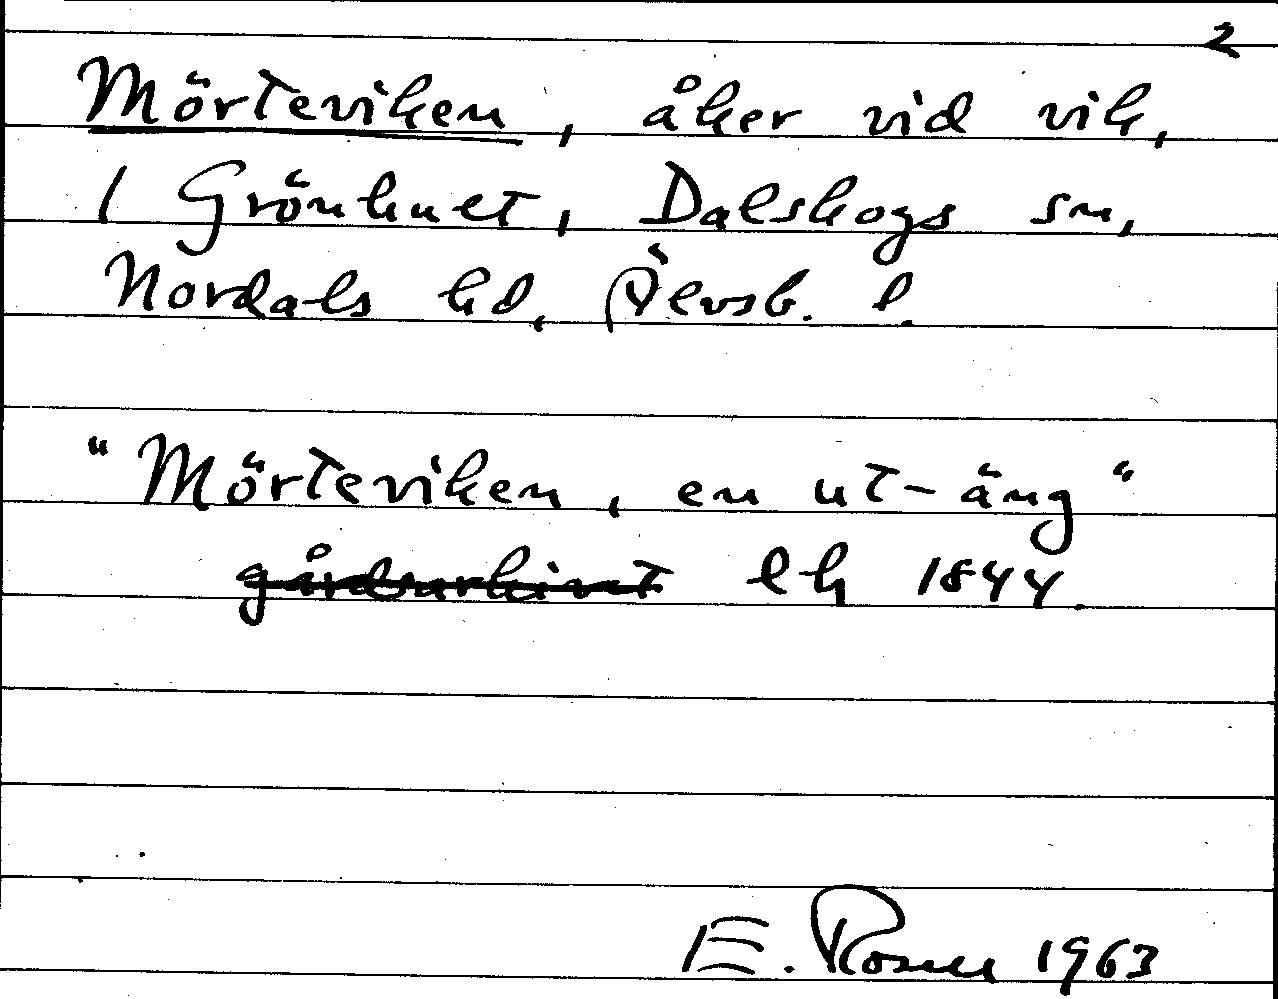 2
Mörteviken, åker vid vik,
1 Grönhult, Dalskogs sn,
Nordals hd, Älvsb. l.
"Mörteviken, en ut-äng"
gårdsarkivet lh 1844.
E. Rosell 1963